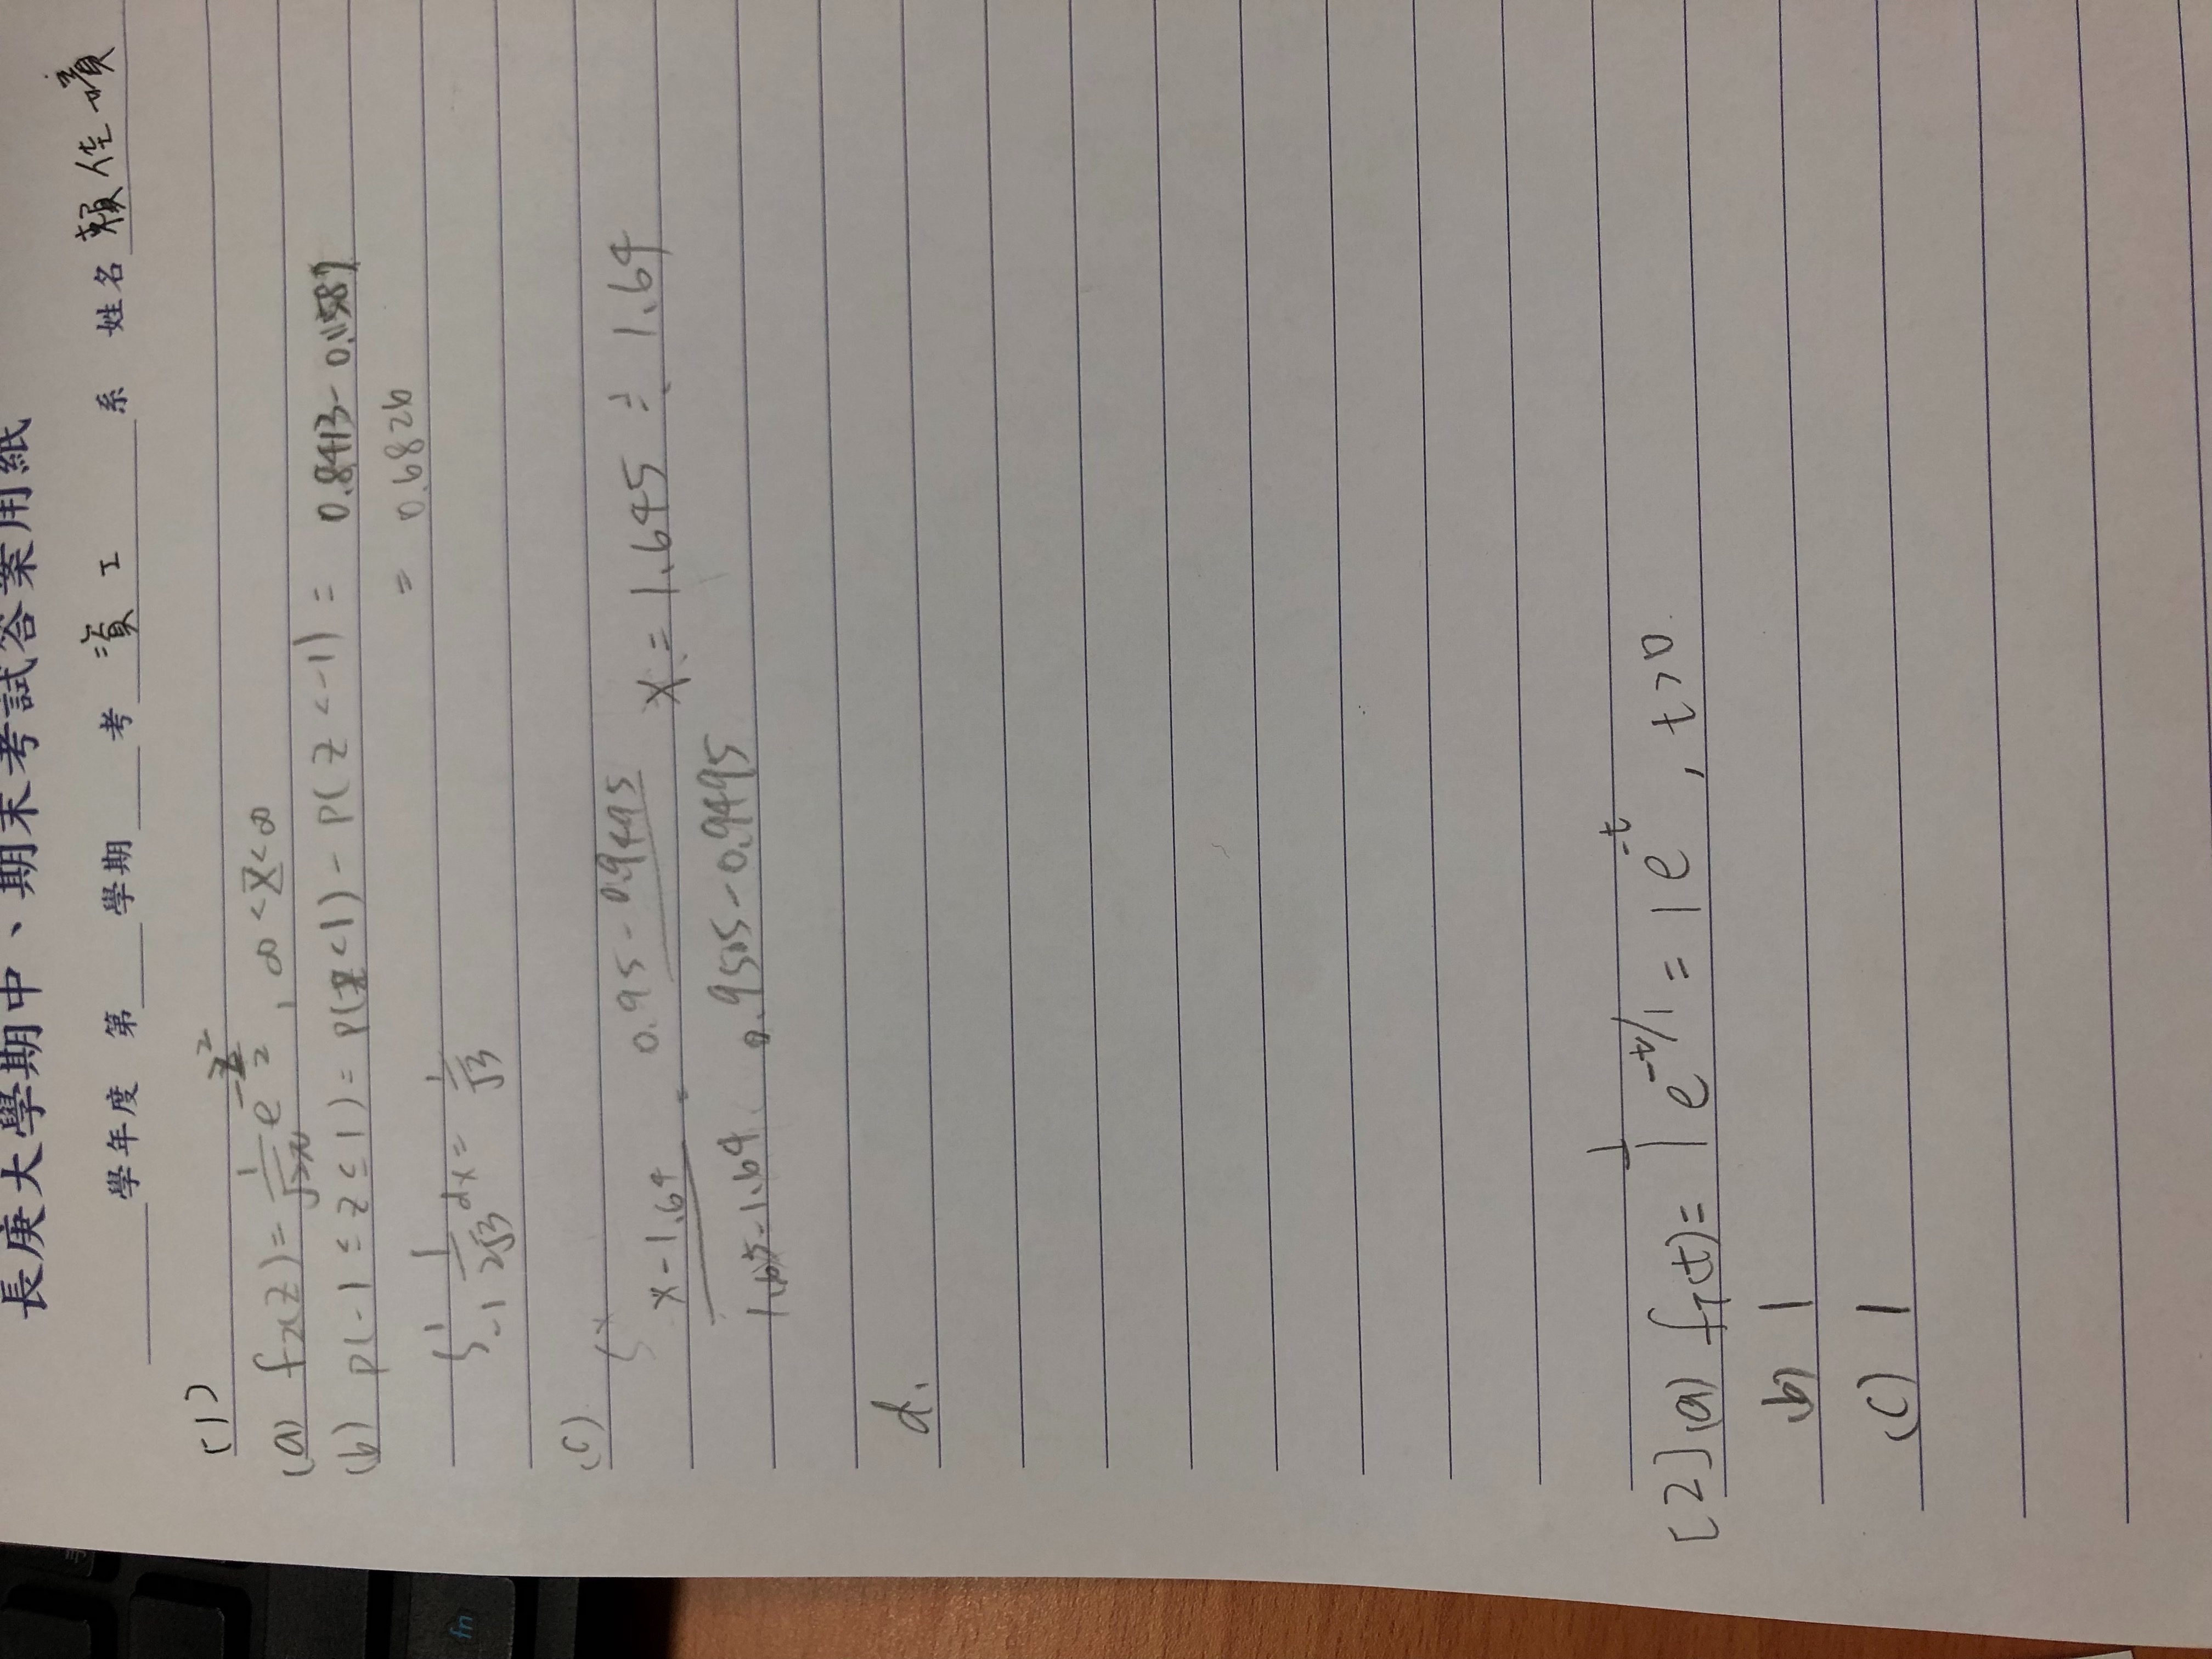 長庚大學期中、期末考試答案用紙
學年度 第 學期 考 資工 系 姓名 賴佳
(1)
(a) fx(z) = 1/√2π e^-z²/2 , ∞ < X < ∞
(b) p(-1 ≤ z ≤ 1) = p(z < 1) - p( z < -1) = 0.8413 - 0.1587
= 0.6826
∫-1^1 1/2√3 dx = 1/√3
(c)
∫x
x - 1.64 / 1.65 - 1.64 = 0.95 - 0.9495 / 0.9505 - 0.9495 x = 1.645 ≒ 1.64
d.
[2] (a) fT(t) = 1/1 e^-t/1 = 1 e^-t , t > 0
(b) 1
(c) 1
fn